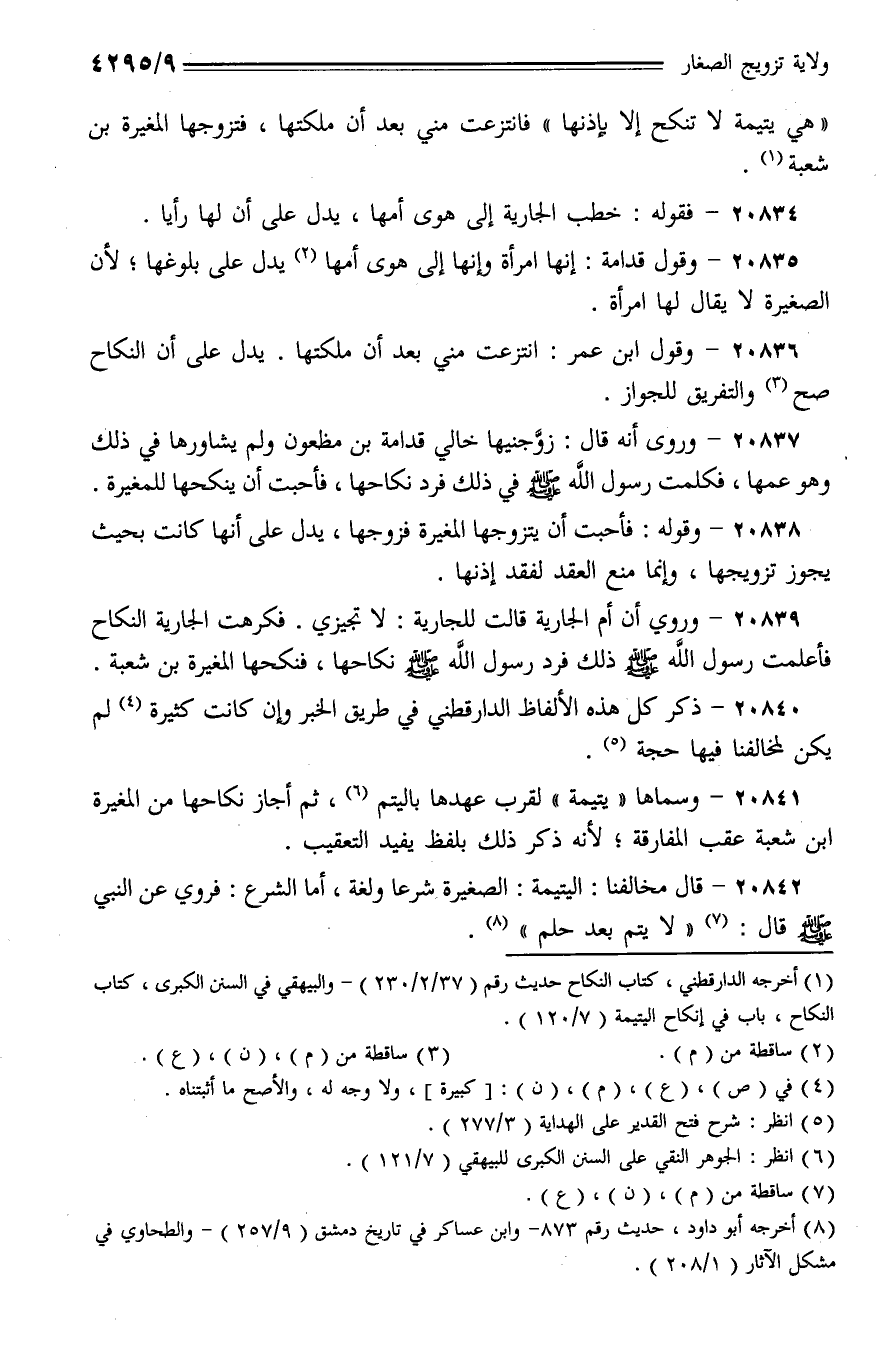 ولاية تزويج الصغار ٤٢٩٥/٩
« هي يتيمة لا تنكح إلا بإذنها » فانتزعت مني بعد أن ملكتها ، فتزوجها المغيرة بن
شعبة (١) .
٢٠٨٣٤ – فقوله : خطب الجارية إلى هوى أمها ، يدل على أن لها رأيا .
٢٠٨٣٥ – وقول قدامة : إنها امرأة وإنها إلى هوى أمها (٢) يدل على بلوغها ؛ لأن
الصغيرة لا يقال لها امرأة .
٢٠٨٣٦ – وقول ابن عمر : انتزعت مني بعد أن ملكتها . يدل على أن النكاح
صح (٣) والتفريق للجواز .
٢٠٨٣٧ – وروى أنه قال : زوَّجنيها خالي قدامة بن مظعون ولم يشاورها في ذلك
وهو عمها ، فكلمت رسول اللَّه ﷺ في ذلك فرد نكاحها ، فأحبت أن ينكحها للمغيرة .
٢٠٨٣٨ – وقوله : فأحبت أن يتزوجها المغيرة فزوجها ، يدل على أنها كانت بحيث
يجوز تزويجها ، وإنما منع العقد لفقد إذنها .
٢٠٨٣٩ – وروي أن أم الجارية قالت للجارية : لا تجيزي . فكرهت الجارية النكاح
فأعلمت رسول اللَّه ﷺ ذلك فرد رسول اللَّه ﷺ نكاحها ، فنكحها المغيرة بن شعبة .
٢٠٨٤٠ – ذكر كل هذه الألفاظ الدارقطني في طريق الخبر وإن كانت كثيرة (٤) لم
يكن لمخالفنا فيها حجة (٥) .
٢٠٨٤١ – وسماها « يتيمة » لقرب عهدها باليتم (٦) ، ثم أجاز نكاحها من المغيرة
ابن شعبة عقب المفارقة ؛ لأنه ذكر ذلك بلفظ يفيد التعقيب .
٢٠٨٤٢ – قال مخالفنا : اليتيمة : الصغيرة شرعا ولغة ، أما الشرع : فروي عن النبي
ﷺ قال : (٧) « لا يتم بعد حلم » (٨) .
(١) أخرجه الدارقطني ، كتاب النكاح حديث رقم ( ٢٣٠/٢/٣٧ ) – والبيهقي في السنن الكبرى ، كتاب
النكاح ، باب في إنكاح اليتيمة ( ١٢٠/٧ ) .
(٢) ساقطة من ( م ) . (٣) ساقطة من ( م ) ، ( ن ) ، ( ع ) .
(٤) في ( ص ) ، ( ع ) ، ( م ) ، ( ن ) : [ كبيرة ] ، ولا وجه له ، والأصح ما أثبتناه .
(٥) انظر : شرح فتح القدير على الهداية ( ٢٧٧/٣ ) .
(٦) انظر : الجوهر النقي على السنن الكبرى للبيهقي ( ١٢١/٧ ) .
(٧) ساقطة من ( م ) ، ( ن ) ، ( ع ) .
(٨) أخرجه أبو داود ، حديث رقم ٨٧٣– وابن عساكر في تاريخ دمشق ( ٢٥٧/٩ ) – والطحاوي في
مشكل الآثار ( ٢٠٨/١ ) .